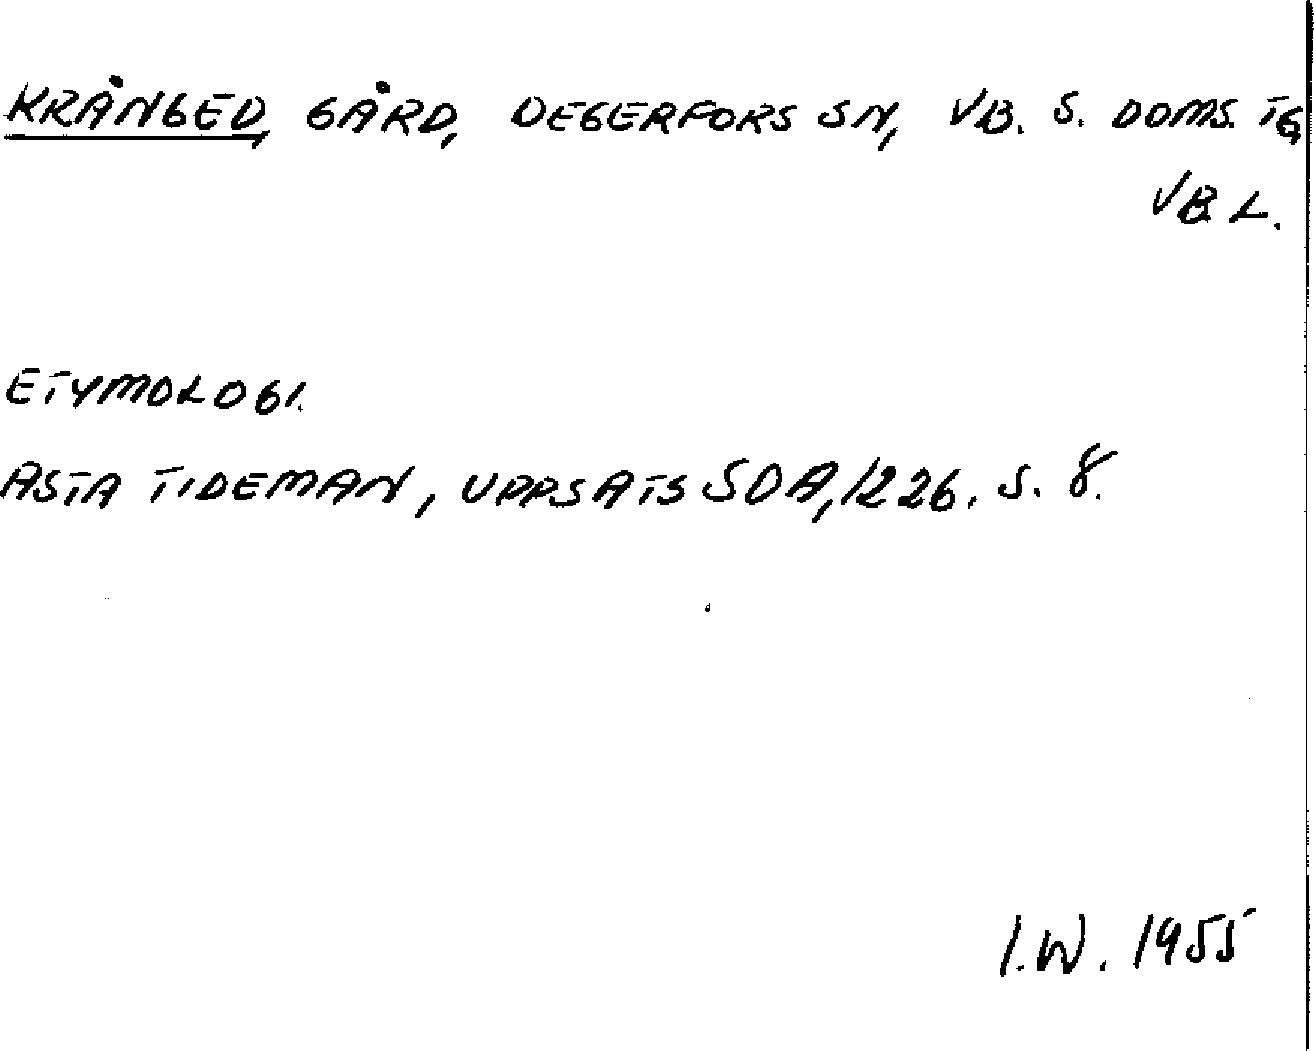 KRÅNGED, GÅRD, DEGERFORS SN, VB. S. DOMS. TG,
VB L.
ETYMOLOGI.
ASTA TIDEMAN, UPPSATS SOA, 1226. S. 8.
I.W. 1955